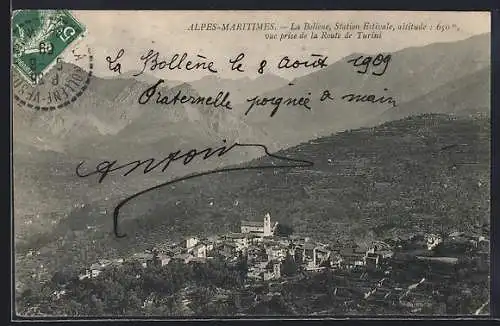 ALPES-MARITIMES. — La Bollène, Station Estivale, altitude : 650 m,
vue prise de la Route de Turini
La Bollène le 8 Août 1909
Fraternelle poignée à main
Antoine
5
LA BOLLÈNE-VÉSUBIE